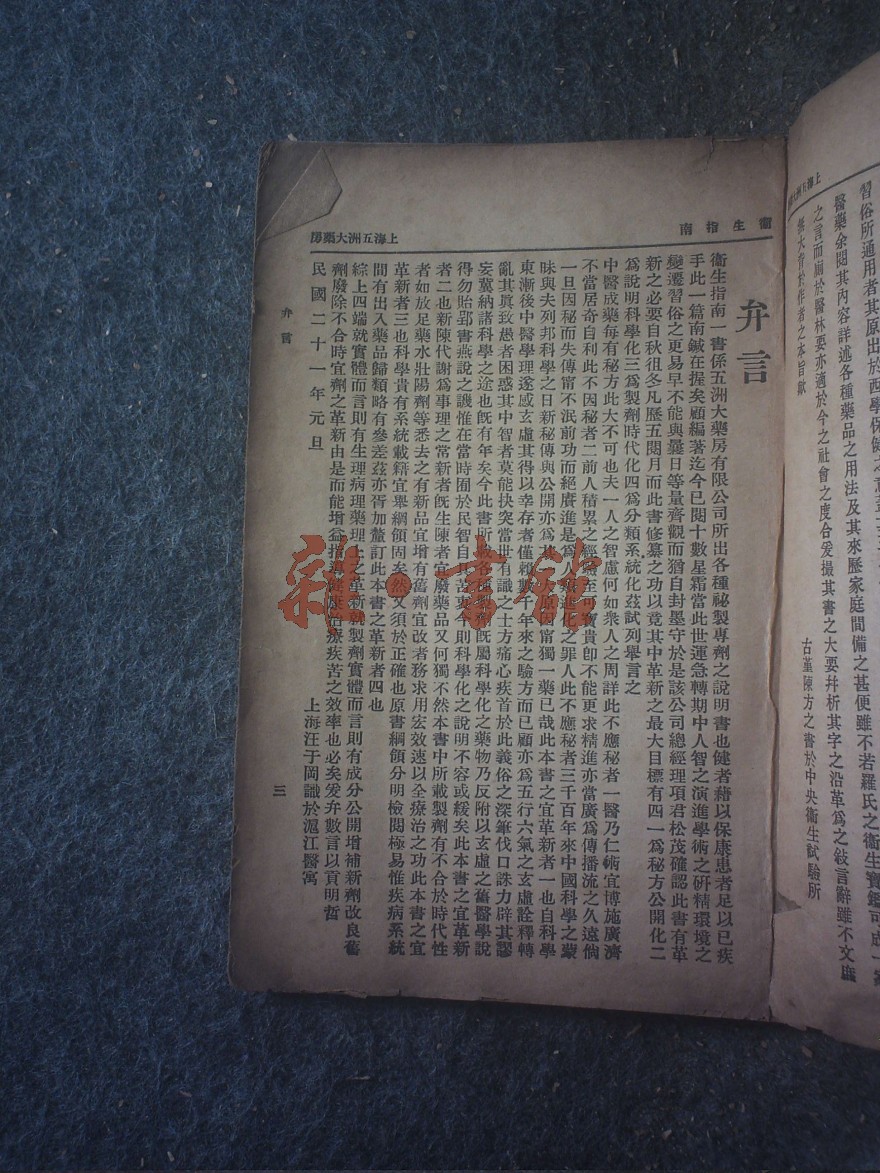 習俗所通用者其原出於西學保健之
醫藥余閱其內容詳述各種藥品之用法及其來歷家庭間備之甚便雖不若羅氏之衞生寶鑑可成一家
之言而廁於醫林要亦適於今之社會之度合爰撮其書之大要幷析其字之沿革爲之敍言辭雖不文庶
無大背於作者之本旨歟
古堇陳方之書於中央衞生試驗所
衞生指南
上海五洲大藥房
弁言
衞生指南一書係五洲大藥房有限公司所出各種祕製專劑之說明書也健者藉以保康患者足以已疾
手此一篇南鍼在握矣顧編著迄今已閱十數星霜當此世運急轉期中人智之演進學術之硏精環境之
變遷習俗之更易早不能與曩日等量齊觀而猶自封墨守於是該公司總經理項君松茂確認此書有革
新之必要自秋徂冬凡歷五閱月而此書修纂之功以竟其中革新之最大目標有四一爲秘方公開化二
爲說明科學化三爲製劑時代化四爲分類系統化茲試列舉言之
中醫成藥每有秘方此大不可也夫一人之智慮何如衆人之周詳此不應秘者一醫乃仁術宜博施廣濟
不當居奇自利此不因秘者二前人積累之經驗至可寶貴卽不能更求精進亦當廣爲傳播流之久遠倘
一旦因秘而失傳甯不泯前功而絕賡進是爲人類進化之罪人此不應秘者三千百年來中國科學之蒙
昧與夫列邦科學之日新秘傳與公開亦爲其大原因甯獨一藥已哉此本書之宜革新者一也自科學
東漸後中醫學理遂感玄虛其得以幸存者僅賴數千年來之驗方而已顧亦爲五行六氣之玄虛詮釋轉
亂其眞致愚者困惑其中智者莫能抉突當世有識之士方痛心疾首於此義俗之深筆伐口誅力辟其謬
妄冀納諸科學之途也旣有年矣今此書所載各種製劑旣屬科學化之藥物乃反附以玄虛之舊醫學說
得勿貽郢書燕說之譏惟在當時囿於民智自具苦衷今則科學化之說明不容或緩矣此本書之宜革新
者二也新陳代謝爲事理之常新者旣生陳者宜廢藥品又何獨不然本書中所載製劑有不合於時代性
者如放足藥水壯陽劑等悉去之有新品宜增有舊劑宜改者務求用宏效速以全療治之功此本書之宜
革新者三也科學貴有系統載籍宜舉綱領固矣然又須於正確也原書綱領分明檢閱極易惟疾病系統
間有出入藥品歸類略有參差茲亦胥加釐訂此本書之革新者四也
綜上四端就實體而言則有生理病理藥理上之革新就製劑實體而言則有成分公開增補新劑改良舊
劑廢除不合時宜劑之革新由是而能增益指導健康治療疾苦之效率也必矣爰弁數言以貢明哲
上海汪于岡識於滬江醫寓
民國二十一年元旦
弁言
三
雜·書館